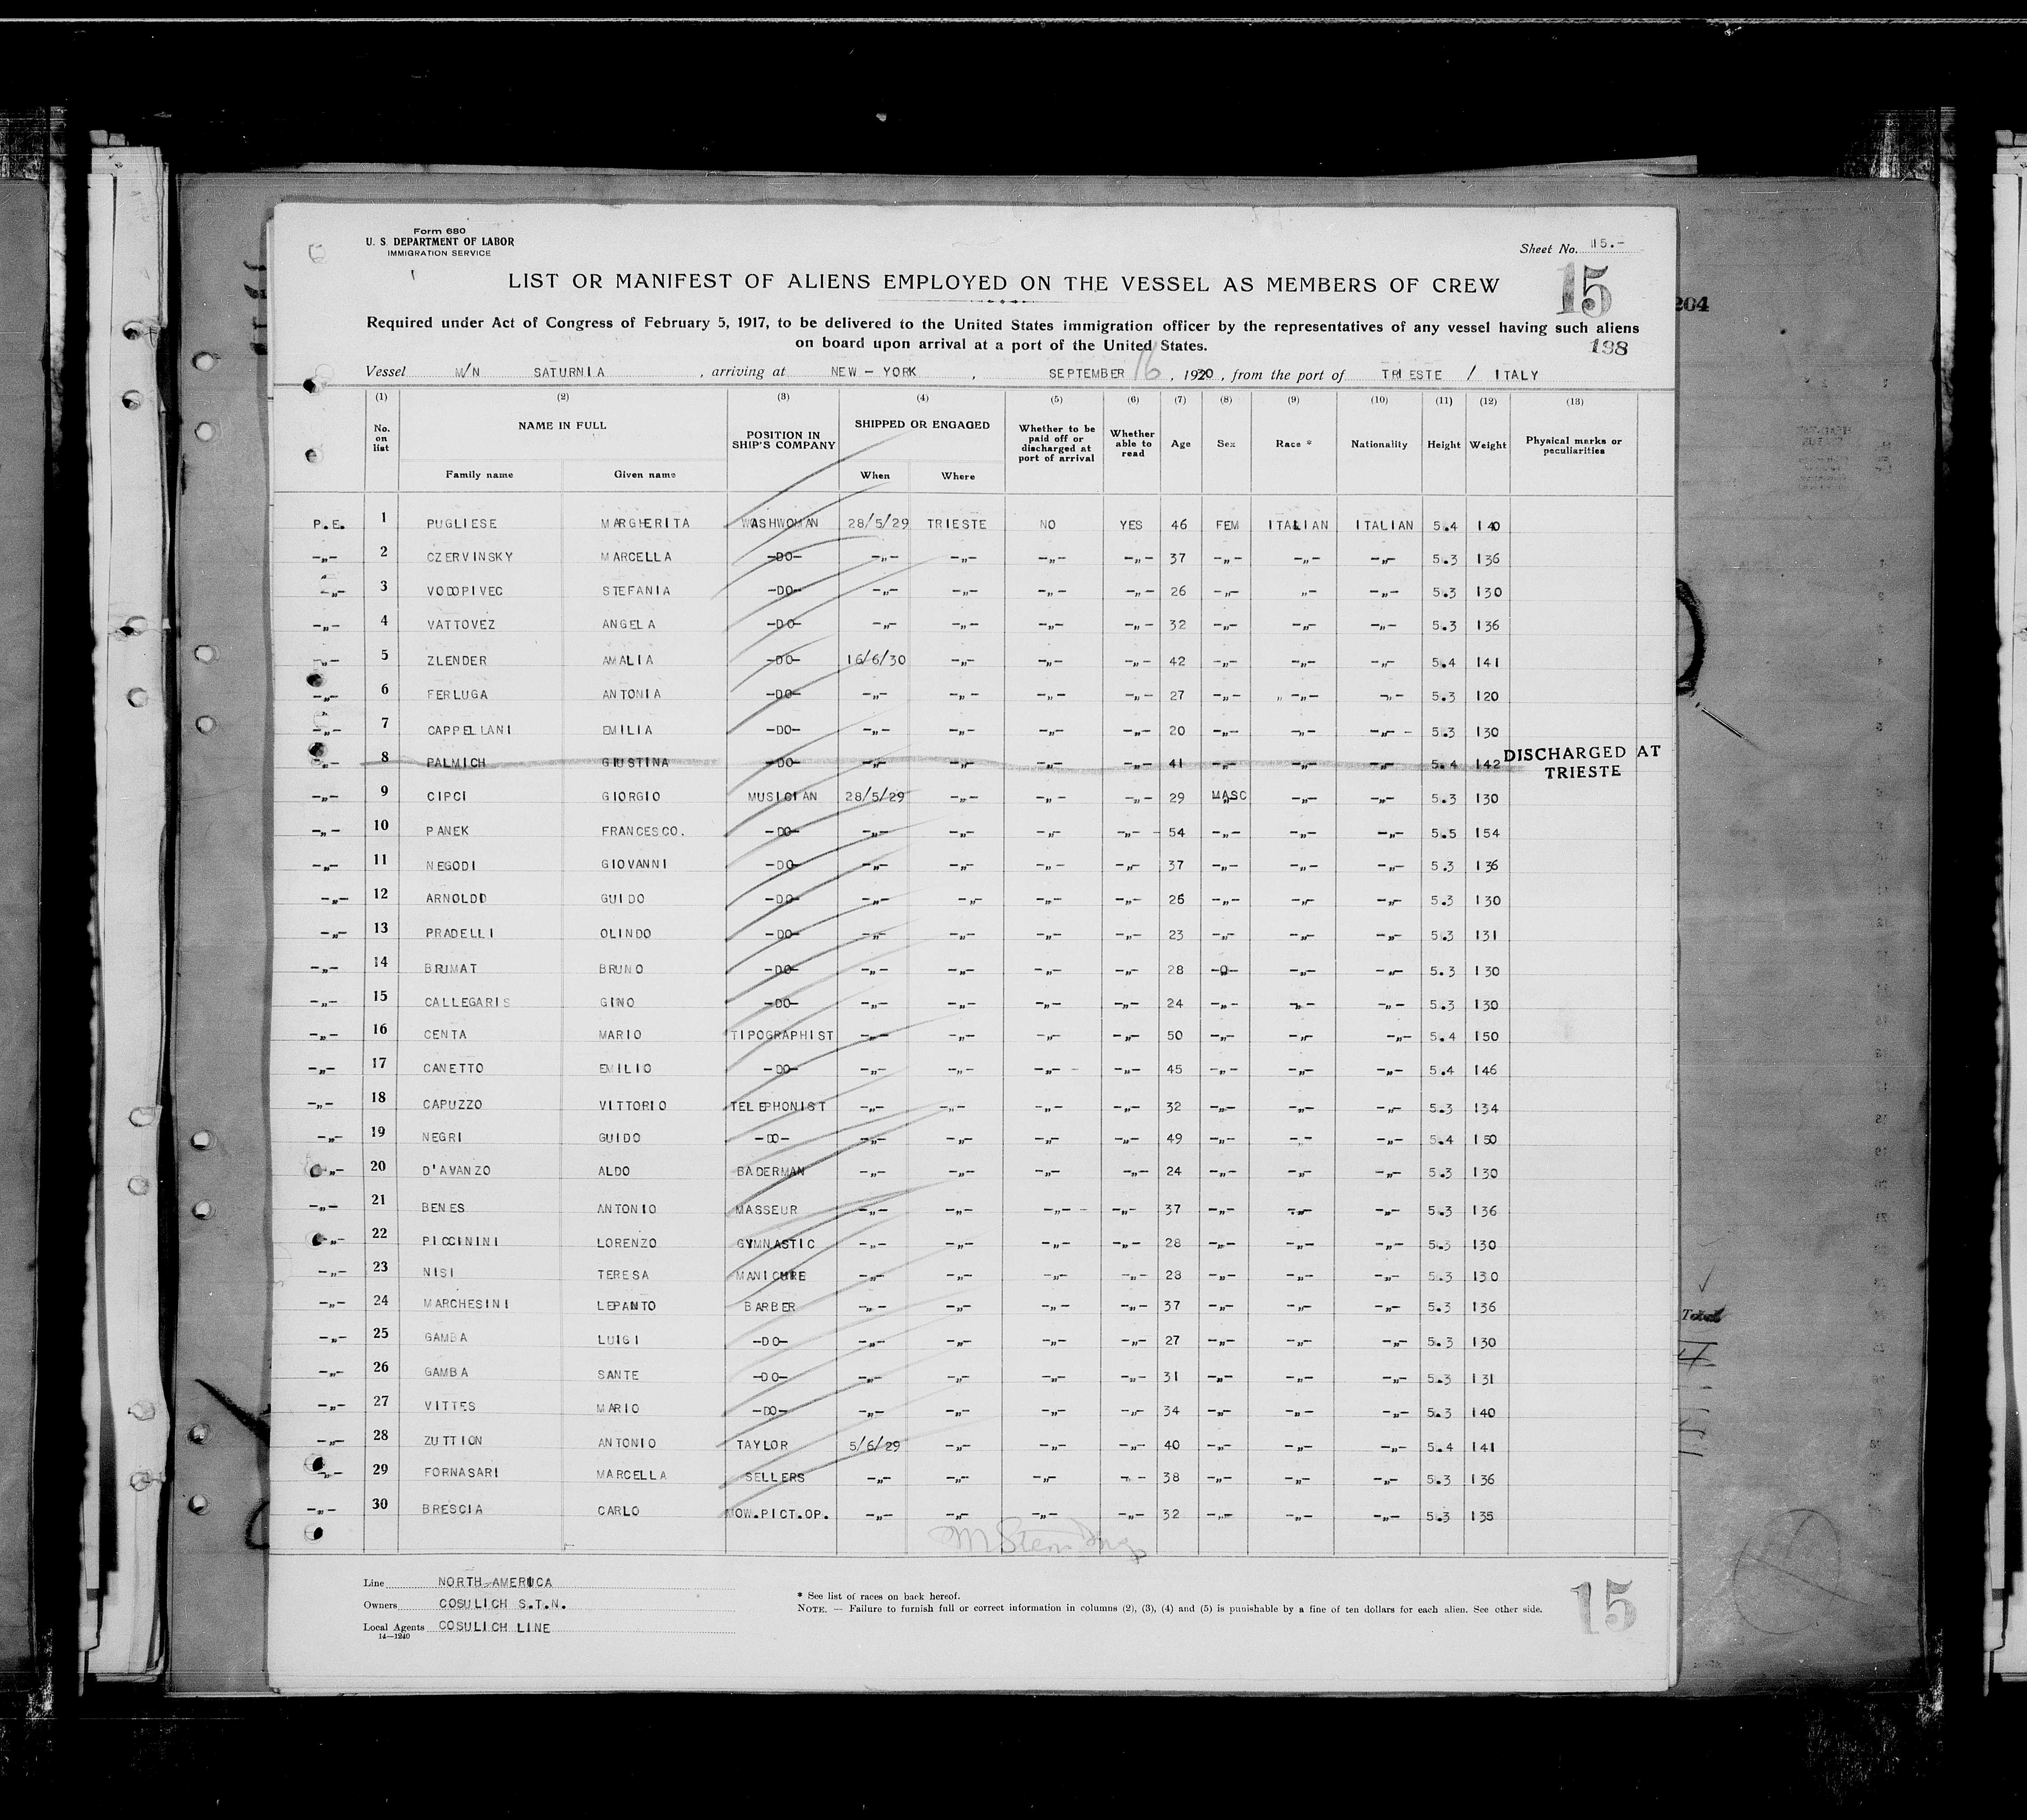 Form 680
U. S. DEPARTMENT OF LABOR
IMMIGRATION SERVICE
Sheet No. 15.-
15
LIST OR MANIFEST OF ALIENS EMPLOYED ON THE VESSEL AS MEMBERS OF CREW
204
Required under Act of Congress of February 5, 1917, to be delivered to the United States immigration officer by the representatives of any vessel having such aliens
on board upon arrival at a port of the United States.
198
Vessel M/N SATURNIA , arriving at NEW - YORK , SEPTEMBER 16 , 1930 , from the port of TRIESTE / ITALY
(1) (2) (3) (4) (5) (6) (7) (8) (9) (10) (11) (12) (13)
No. on list NAME IN FULL POSITION IN SHIP'S COMPANY SHIPPED OR ENGAGED Whether to be paid off or discharged at port of arrival Whether able to read Age Sex Race * Nationality Height Weight Physical marks or peculiarities
Family name Given name When Where
P.E. 1 PUGLIESE MARGHERITA WASHWOMAN 28/5/29 TRIESTE NO YES 46 FEM ITALIAN ITALIAN 5.4 140
-„- 2 CZERVINSKY MARCELLA -DO- -„- -„- -„- -„- 37 -„- -„- -„- 5.3 136
-„- 3 VODOPIVEC STEFANIA -DO- -„- -„- -„- -„- 26 -„- „- -„- 5.3 130
-„- 4 VATTOVEZ ANGELA -DO- -„- -„- -„- -„- 32 -„- -„- -„- 5.3 136
-„- 5 ZLENDER AMALIA -DO- 16/6/30 -„- -„- -„- 42 -„- -„- -„- 5.4 141
-„- 6 FERLUGA ANTONIA -DO- -„- -„- -„- -„- 27 -„- „ -„- -„- 5.3 120
-„- 7 CAPPELLANI EMILIA -DO- -„- -„- -„- -„- 20 -„- -„- -„- 5.3 130
-„- 8 PALMICH GIUSTINA -DO- -„- -„- -„- -„- 41 -„- -„- -„- 5.4 142 DISCHARGED AT TRIESTE
-„- 9 CIPCI GIORGIO MUSICIAN 28/5/29 -„- -„- -„- 29 MASC -„- -„- 5.3 130
-„- 10 PANEK FRANCESCO. -DO- -„- -„- -„- -„- 54 -„- -„- -„- 5.5 154
-„- 11 NEGODI GIOVANNI -DO- -„- -„- -„- -„- 37 -„- -„- -„- 5.3 136
-„- 12 ARNOLDO GUIDO -DO- -„- -„- -„- -„- 26 -„- -„- -„- 5.3 130
-„- 13 PRADELLI OLINDO -DO- -„- -„- -„- -„- 23 -„- -„- -„- 5.3 131
-„- 14 BRUMAT BRUNO -DO- -„- -„- -„- -„- 28 -„- -„- -„- 5.3 130
-„- 15 CALLEGARIS GINO -DO- -„- -„- -„- -„- 24 -„- -„- -„- 5.3 130
-„- 16 CENTA MARIO TIPOGRAPHIST -„- -„- -„- -„- 50 -„- -„- -„- 5.4 150
-„- 17 CANETTO EMILIO -DO- -„- -„- -„- -„- 45 -„- -„- -„- 5.4 146
-„- 18 CAPUZZO VITTORIO TELEPHONIST -„- -„- -„- -„- 32 -„- -„- -„- 5.3 134
-„- 19 NEGRI GUIDO -DO- -„- -„- -„- -„- 49 -„- -„- -„- 5.4 150
-„- 20 D'AVANZO ALDO BADERMAN -„- -„- -„- -„- 24 -„- -„- -„- 5.3 130
-„- 21 BENES ANTONIO MASSEUR -„- -„- -„- -„- 37 -„- -„- -„- 5.3 136
-„- 22 PICCININI LORENZO GYMNASTIC -„- -„- -„- -„- 28 -„- -„- -„- 5.3 130
-„- 23 NISI TERESA MANICURE -„- -„- -„- -„- 28 -„- -„- -„- 5.3 130
-„- 24 MARCHESINI LEPANTO BARBER -„- -„- -„- -„- 37 -„- -„- -„- 5.3 136
-„- 25 GAMBA LUIGI -DO- -„- -„- -„- -„- 27 -„- -„- -„- 5.3 130
-„- 26 GAMBA SANTE -DO- -„- -„- -„- -„- 31 -„- -„- -„- 5.3 131
-„- 27 VITTES MARIO -DO- -„- -„- -„- -„- 34 -„- -„- -„- 5.3 140
-„- 28 ZUTTION ANTONIO TAYLOR 5/6/29 -„- -„- -„- 40 -„- -„- -„- 5.4 141
-„- 29 FORNASARI MARCELLA SELLERS -„- -„- -„- -„- 38 -„- -„- -„- 5.3 136
-„- 30 BRESCIA CARLO MOW.PICT.OP. -„- -„- -„- -„- 32 -„- -„- -„- 5.3 135
Total
Line NORTH-AMERICA
Owners COSULICH S.T.N.
Local Agents COSULICH LINE
14—1240
* See list of races on back hereof.
NOTE. — Failure to furnish full or correct information in columns (2), (3), (4) and (5) is punishable by a fine of ten dollars for each alien. See other side.
15